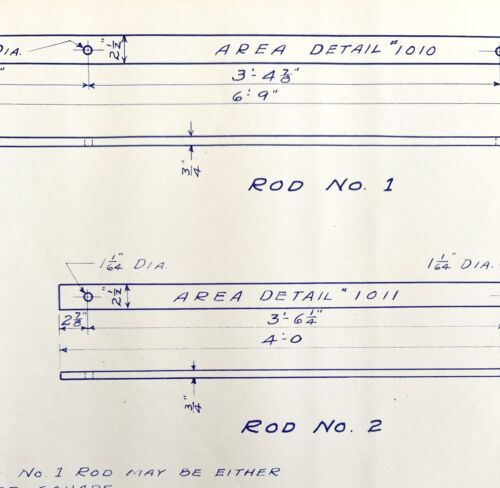 DIA.
2½"
AREA DETAIL #1010
3'-4⅞"
6'-9"
¾"
ROD NO. 1
1 1/64" DIA.
1 1/64" DIA.
2½"
AREA DETAIL #1011
2⅞"
3'-6¼"
4'-0
¾"
ROD NO. 2
NO. 1 ROD MAY BE EITHER
SQUARE